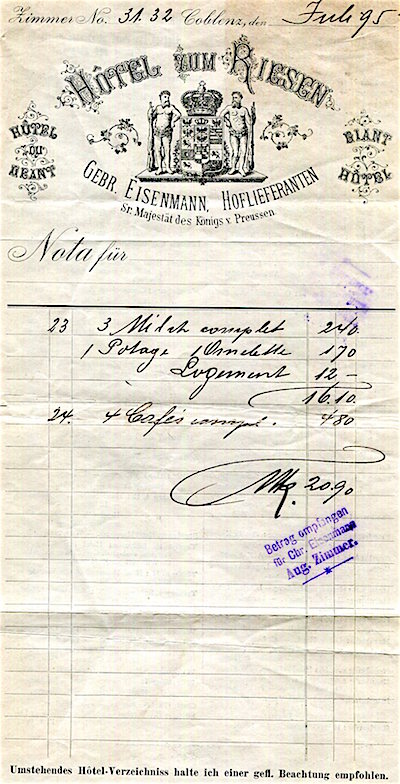 Zimmer No. 31. 32 Coblenz, den Juli 95
HÔTEL ZUM RIESEN
HÔTEL DU GEANT
GIANT HÔTEL
GEBR. EISENMANN, HOFLIEFERANTEN
Sr. Majestät des Königs v. Preussen.
Nota für
23 3 Milch complet 240
1 Potage 1 Omelette 170
Logement 12 –
16.10.
24. 4 Cafés compl. 480
Mk. 20.90
Betrag empfangen
für Chr. Eisenmann
Aug. Zimmer.
Umstehendes Hôtel-Verzeichniss halte ich einer gefl. Beachtung empfohlen.